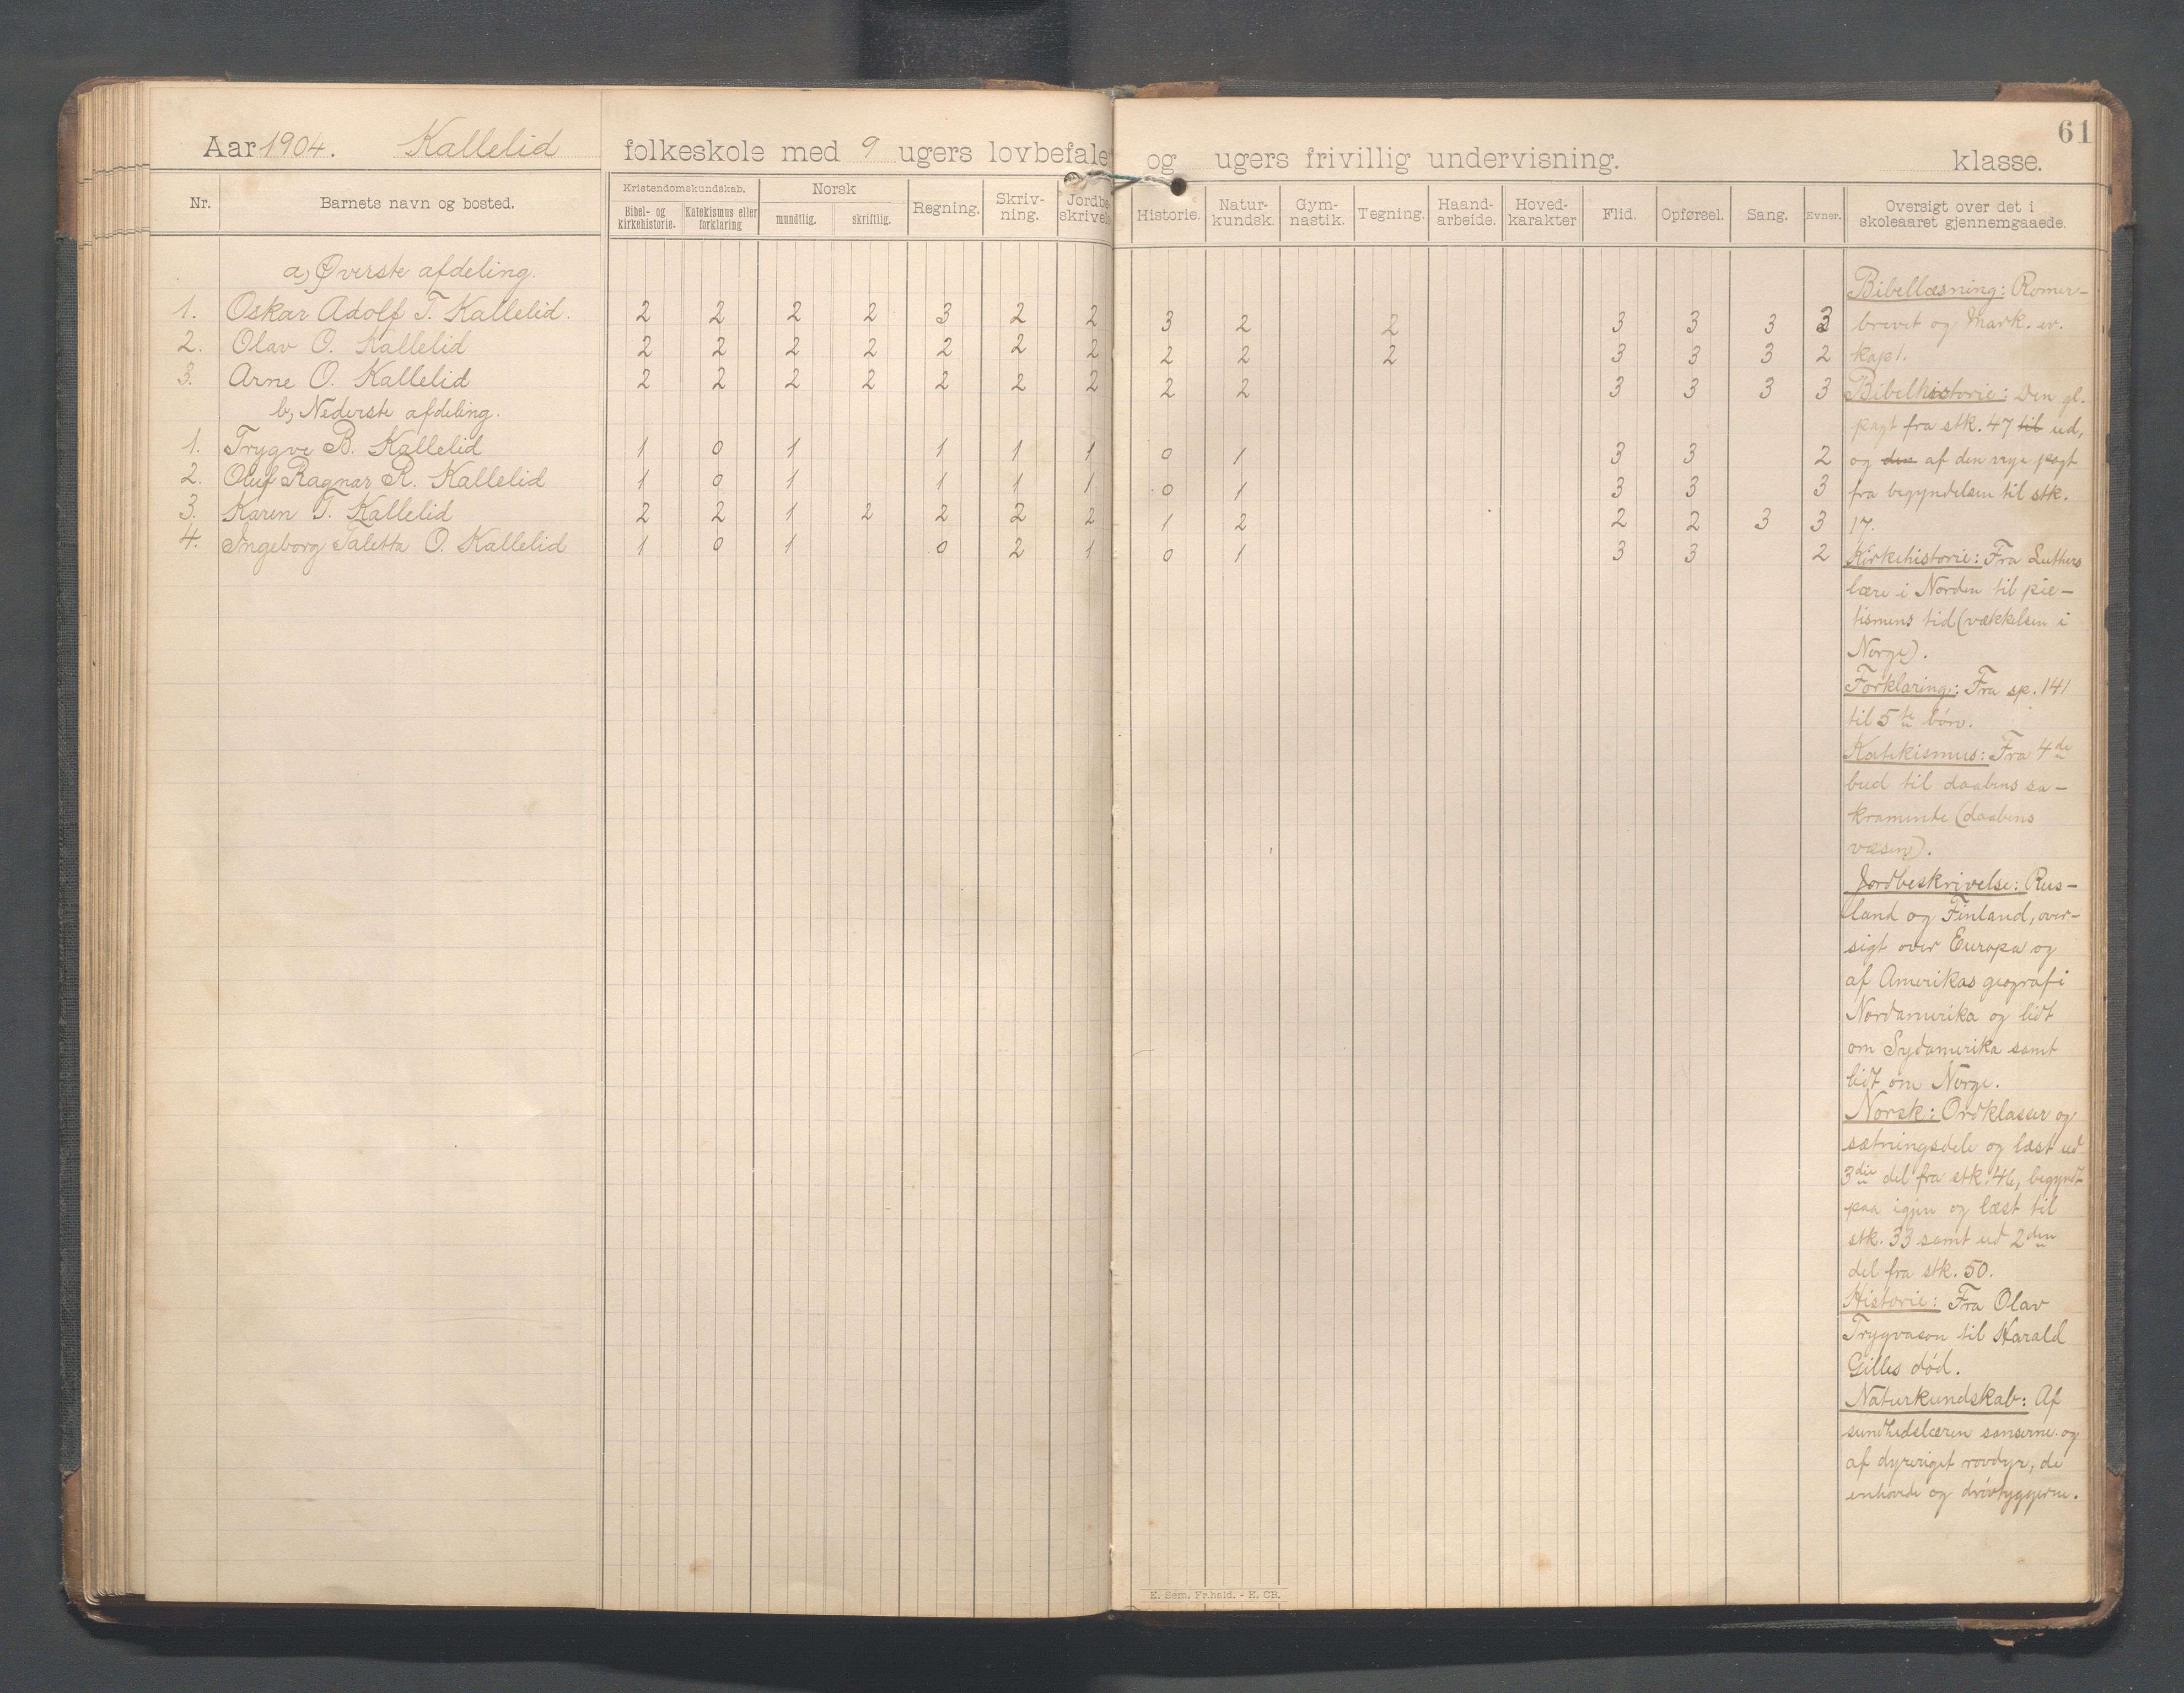 61
Aar 1904. Kallelid folkeskole med 9 ugers lovbefale og ugers frivillig undervisning. klasse.
Nr. Barnets navn og bosted. Kristendomskundskab. Bibel- og kirkehistorie. Katekismus eller forklaring Norsk mundtlig. skriftlig. Regning. Skriv-ning. Jordbe-skrivels Historie. Natur-kundsk. Gym-nastik. Tegning. Haand-arbeide. Hoved-karakter Flid. Opførsel. Sang. Evner. Oversigt over det i skoleaaret gjennemgaaede.
a, Øverste afdeling.
1. Oskar Adolf T. Kallelid. 2 2 2 2 3 2 2 3 2 2 3 3 3 3
2. Olav O. Kallelid 2 2 2 2 2 2 2 2 2 2 3 3 3 2
3. Arne O. Kallelid 2 2 2 2 2 2 2 2 2 3 3 3 3
b, Nederste afdeling.
1. Trygve B. Kallelid 1 0 1 1 1 1 0 1 3 3 2
2. Oluf Ragnar R. Kallelid 1 0 1 1 1 1 0 1 3 3 3
3. Karen T. Kallelid 2 2 1 2 2 2 2 1 2 2 2 3 3
4. Ingeborg Taletta O. Kallelid 1 0 1 0 2 1 0 1 3 3 2
Bibellæsning: Romer-
brevet og Mark. ev.
kap 1.
Bibelhistorie: Den gl.
pagt fra stk. 47 til ud,
og den af den nye pagt
fra begyndelsen til stk.
17.
Kirkehistorie: Fra Luthers
lære i Norden til pie-
tismens tid (vækkelsen i
Norge).
Forklaring: Fra sp. 141
til 5te bøn.
Katekismus: Fra 4de
bud til daabens sa-
kramente (daabens
væsen).
Jordbeskrivelse: Rus-
land og Finland, over-
sigt over Europa og
af Amerikas geografi
Nordamerika og lidt
om Sydamerika samt
lidt om Norge.
Norsk: Ordklasser og
sætningsdele og læst ud
3die del fra stk. 46, begyndt
paa igjen og læst til
stk. 33 samt ud 2den
del fra stk. 50.
Historie: Fra Olav
Trygvason til Harald
Gilles død.
Naturkundskab: Af
sundhedslæren sanserne og
af dyreriget rovdyr, de
enhovede og drøvtyggerne.
E. Sem. Fr.hald. - E. CB.